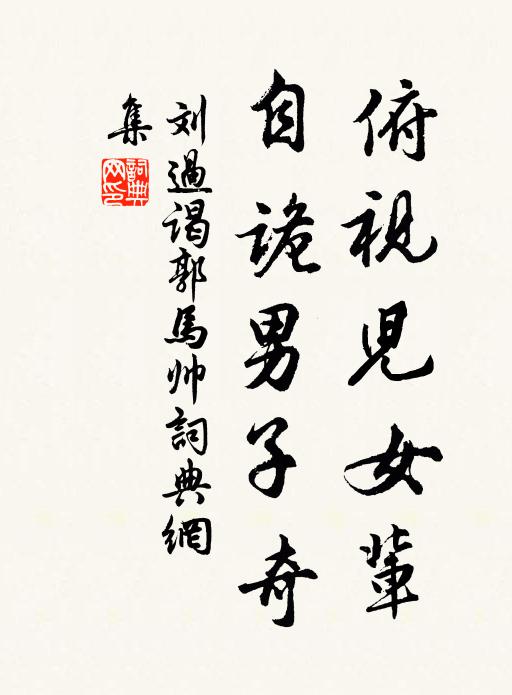 俯視児女輩
自詭男子奇
刘過謁郭馬帅詞典網
集
詞典
网印